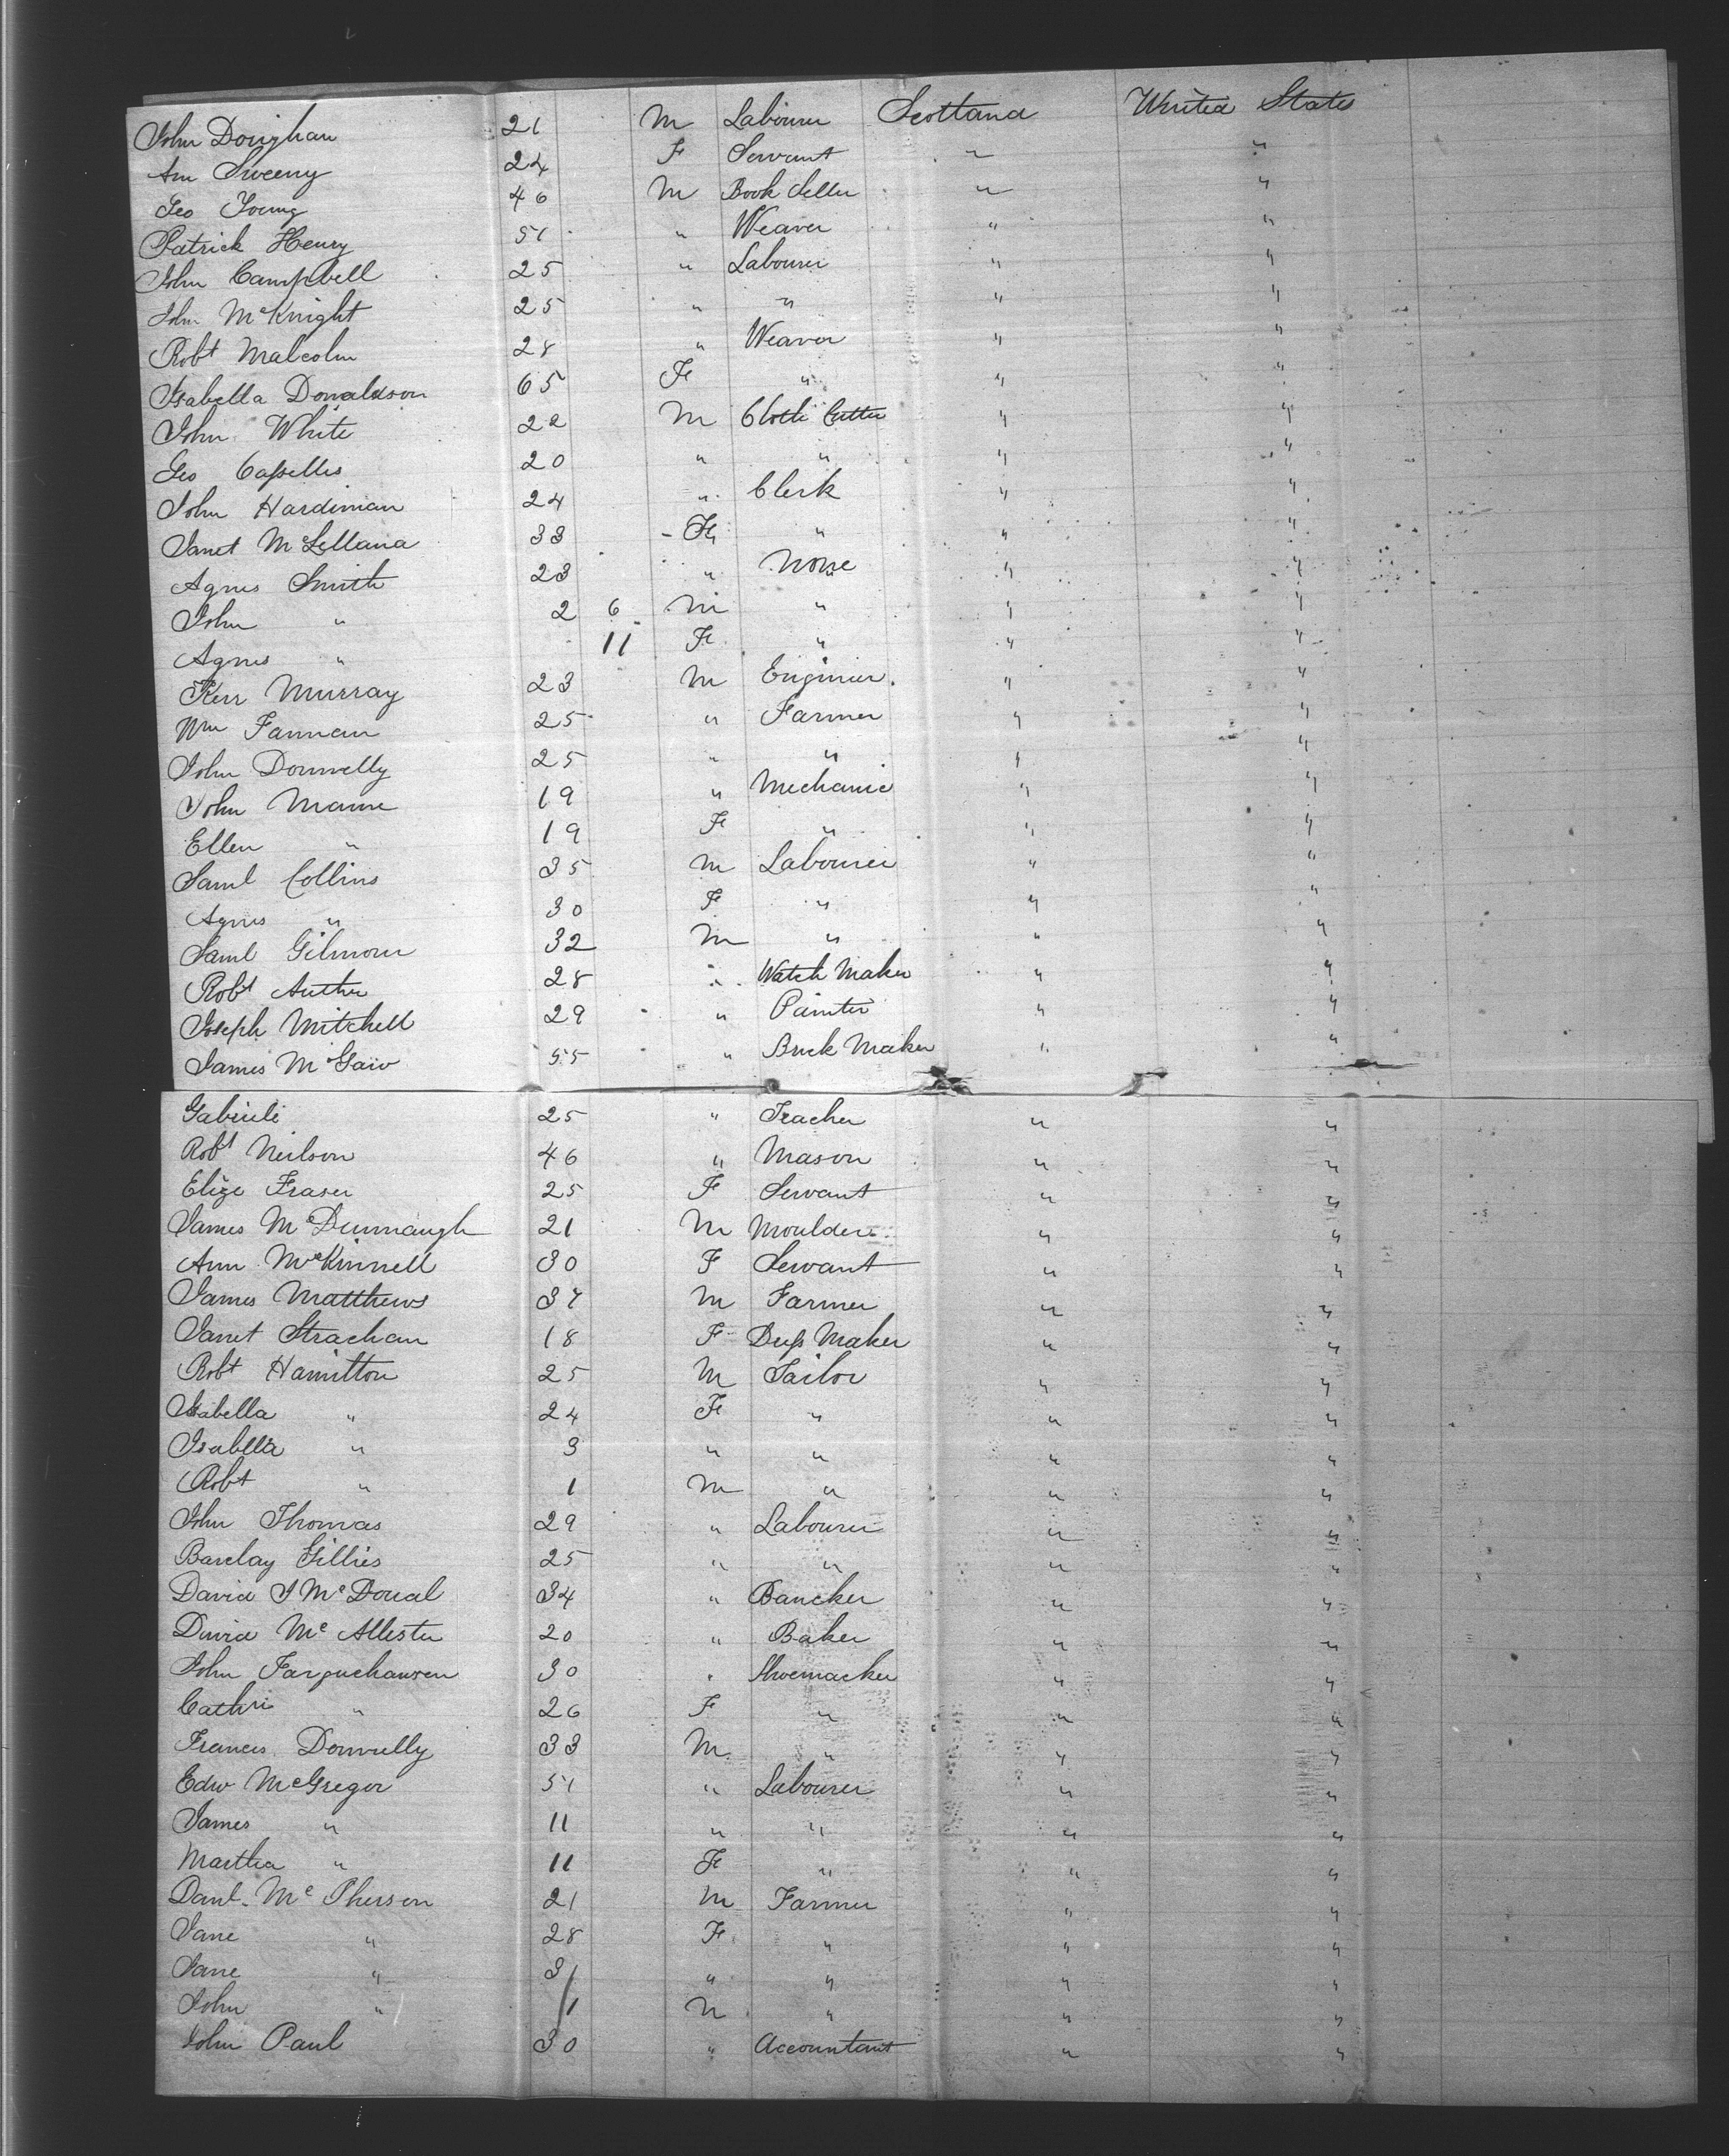 John Doughan 21 M Labourer Scotland United States
Ann Sweeny 24 F Servant " "
Geo Young 46 M Book Seller " "
Patrick Henry 51 " Weaver " "
John Campbell 25 " Labourer " "
John McKnight 25 " " " "
Robt Malcolm 28 " Weaver " "
Isabella Donaldson 65 F " " "
John White 22 M Cloth Cutter " "
Geo Cassells 20 " " " "
John Hardiman 24 " Clerk " "
Janet McLelland 33 F " " "
Agnes Smith 23 " None " "
John " 2 6 M " " "
Agnes " 11 F " " "
Kerr Murray 23 M Enginier " "
Wm Fannan 25 " Farmer " "
John Donnelly 25 " " " "
John Mann 19 " Mechanic " "
Ellen " 19 F " " "
Saml Collins 35 M Labourer " "
Agnes " 30 F " " "
Saml Gilmour 32 M " " "
Robt Auther 28 " Watch Maker " "
Joseph Mitchell 29 " Painter " "
James McGaw 55 " Brick Maker " "
25 " Teacher " "
Robt Neilson 46 " Mason " "
Eliza Fraser 25 F Servant " "
James McDunnaugh 21 M Moulder " "
Ann McKinnell 30 F Servant " "
James Matthews 37 M Farmer " "
Janet Strachan 18 F Dress Maker " "
Robt Hamilton 25 M Tailor " "
Isabella " 24 F " " "
Isabella " 3 " " " "
Robt " 1 M " " "
John Thomas 29 " Labourer " "
Barclay Gillies 25 " " " "
David J McDoual 34 " Bancker " "
David McAllister 20 " Baker " "
John Farguehausen 30 " Shoemacker " "
Cathri " 26 F " " "
Francis Donnelly 33 M " " "
Edw McGregor 51 " Labourer " "
James " 11 " " " "
Martha " 11 F " " "
Danl McPherson 21 M Farmer " "
Jane " 28 F " " "
Jane " 3 " " " "
John " 1 M " " "
John Paul 30 " Accountant " "